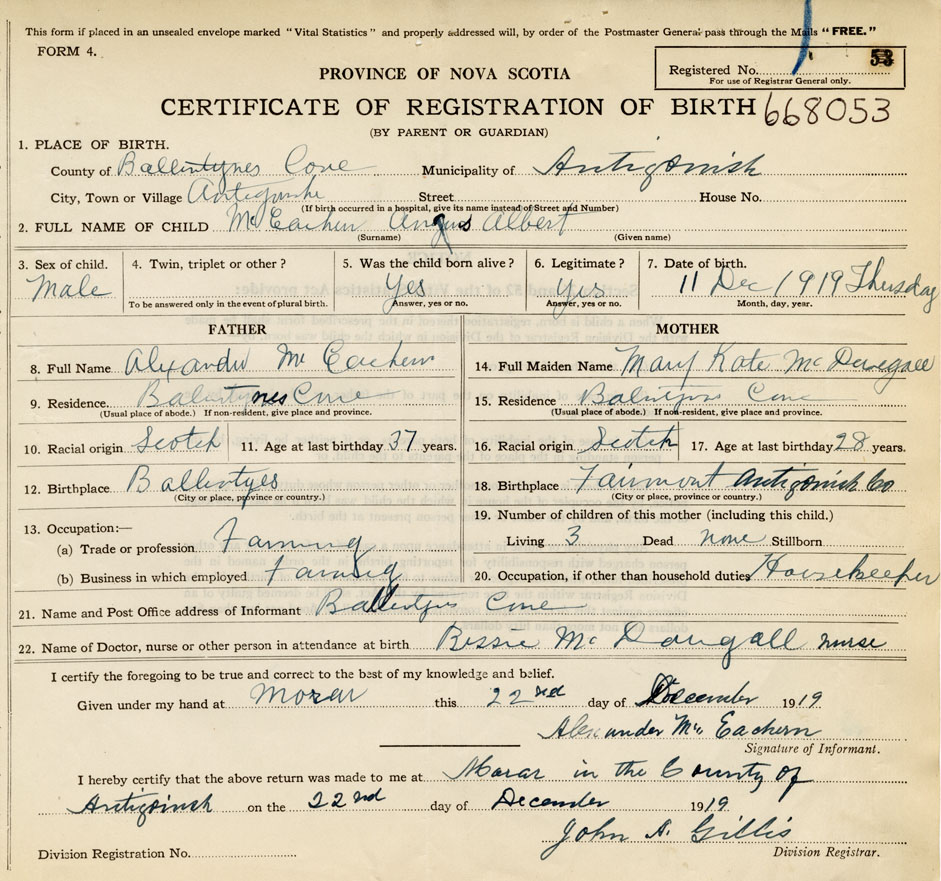 This form if placed in an unsealed envelope marked "Vital Statistics" and properly addressed will, by order of the Postmaster General pass through the Mails "FREE."
FORM 4.
53
Registered No.
For use of Registrar General only.
PROVINCE OF NOVA SCOTIA
CERTIFICATE OF REGISTRATION OF BIRTH 668053
(BY PARENT OR GUARDIAN)
1. PLACE OF BIRTH.
County of Ballantynes Cove Municipality of Antigonish
City, Town or Village Street House No.
(If birth occurred in a hospital, give its name instead of Street and Number)
2. FULL NAME OF CHILD McEachern Angus Albert
(Surname) (Given name)
3. Sex of child. 4. Twin, triplet or other? 5. Was the child born alive? 6. Legitimate? 7. Date of birth.
Male Yes Yes 11 Dec 1919 Thursday
To be answered only in the event of plural birth. Answer, yes or no. Answer, yes or no. Month, day, year.
FATHER MOTHER
8. Full Name Alexander McEachern 14. Full Maiden Name Mary Kate McDougall
9. Residence. Ballantynes Cove 15. Residence Cove
(Usual place of abode.) If non-resident, give place and province. (Usual place of abode.) If non-resident, give place and province.
10. Racial origin Scotch 11. Age at last birthday 37 years. 16. Racial origin Scotch 17. Age at last birthday 28 years.
12. Birthplace 18. Birthplace Fairmont Antigonish Co
(City or place, province or country.) (City or place, province or country.)
13. Occupation:— 19. Number of children of this mother (including this child.)
(a) Trade or profession Farming Living 3 Dead none Stillborn
(b) Business in which employed 20. Occupation, if other than household duties Housekeeper
21. Name and Post Office address of Informant Cove
22. Name of Doctor, nurse or other person in attendance at birth Bessie McDougall nurse
I certify the foregoing to be true and correct to the best of my knowledge and belief.
Given under my hand at Morar this 22nd day of December 1919
Alexander McEachern
Signature of Informant.
I hereby certify that the above return was made to me at Morar in the County of
Antigonish on the 22nd day of December 1919
John A. Gillis
Division Registration No. Division Registrar.